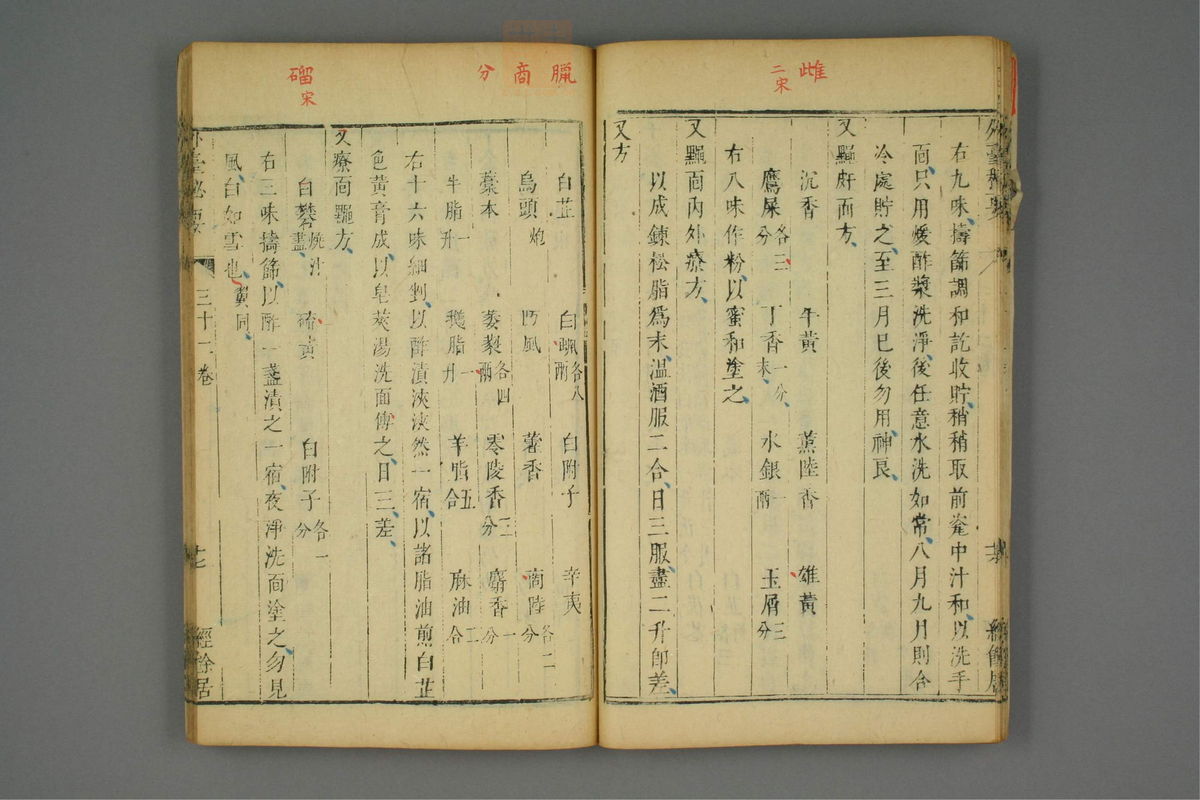 雌
二宋
右九味擣篩調和訖收貯稍稍取前瓷中汁和以洗手
面只用煖酢漿洗淨後任意水洗如常八月九月則合
冷處貯之至三月巳後勿用神良
又䵟皯面方
沉香 牛黃 薰陸香 雄黃
鷹屎各三分 丁香一分末 水銀一兩 玉屑三分
右八味作粉以蜜和塗之
又䵟面內外療方
以成鍊松脂爲末温酒服二合日三服盡二升即差
又方
臘 商 分
白芷 白蠟各八兩 白附子 辛夷
烏頭炮 防風 藿香 商陸各二分
藁本 萎蕤各四兩 零陵香二分 麝香一分
牛脂一升 鵝脂一升 羊脂五合 麻油二合
右十六味細剉以酢漬浹浹然一宿以諸脂油煎白芷
色黃膏成以皂莢湯洗面傅之日三差
又療面䵟方
白礬燒汁盡 硫黃 白附子各一分
右三味擣篩以酢一盞漬之一宿夜淨洗面塗之勿見
風白如雪也冀同
外臺秘要 三十二卷 經餘居
磂
宋